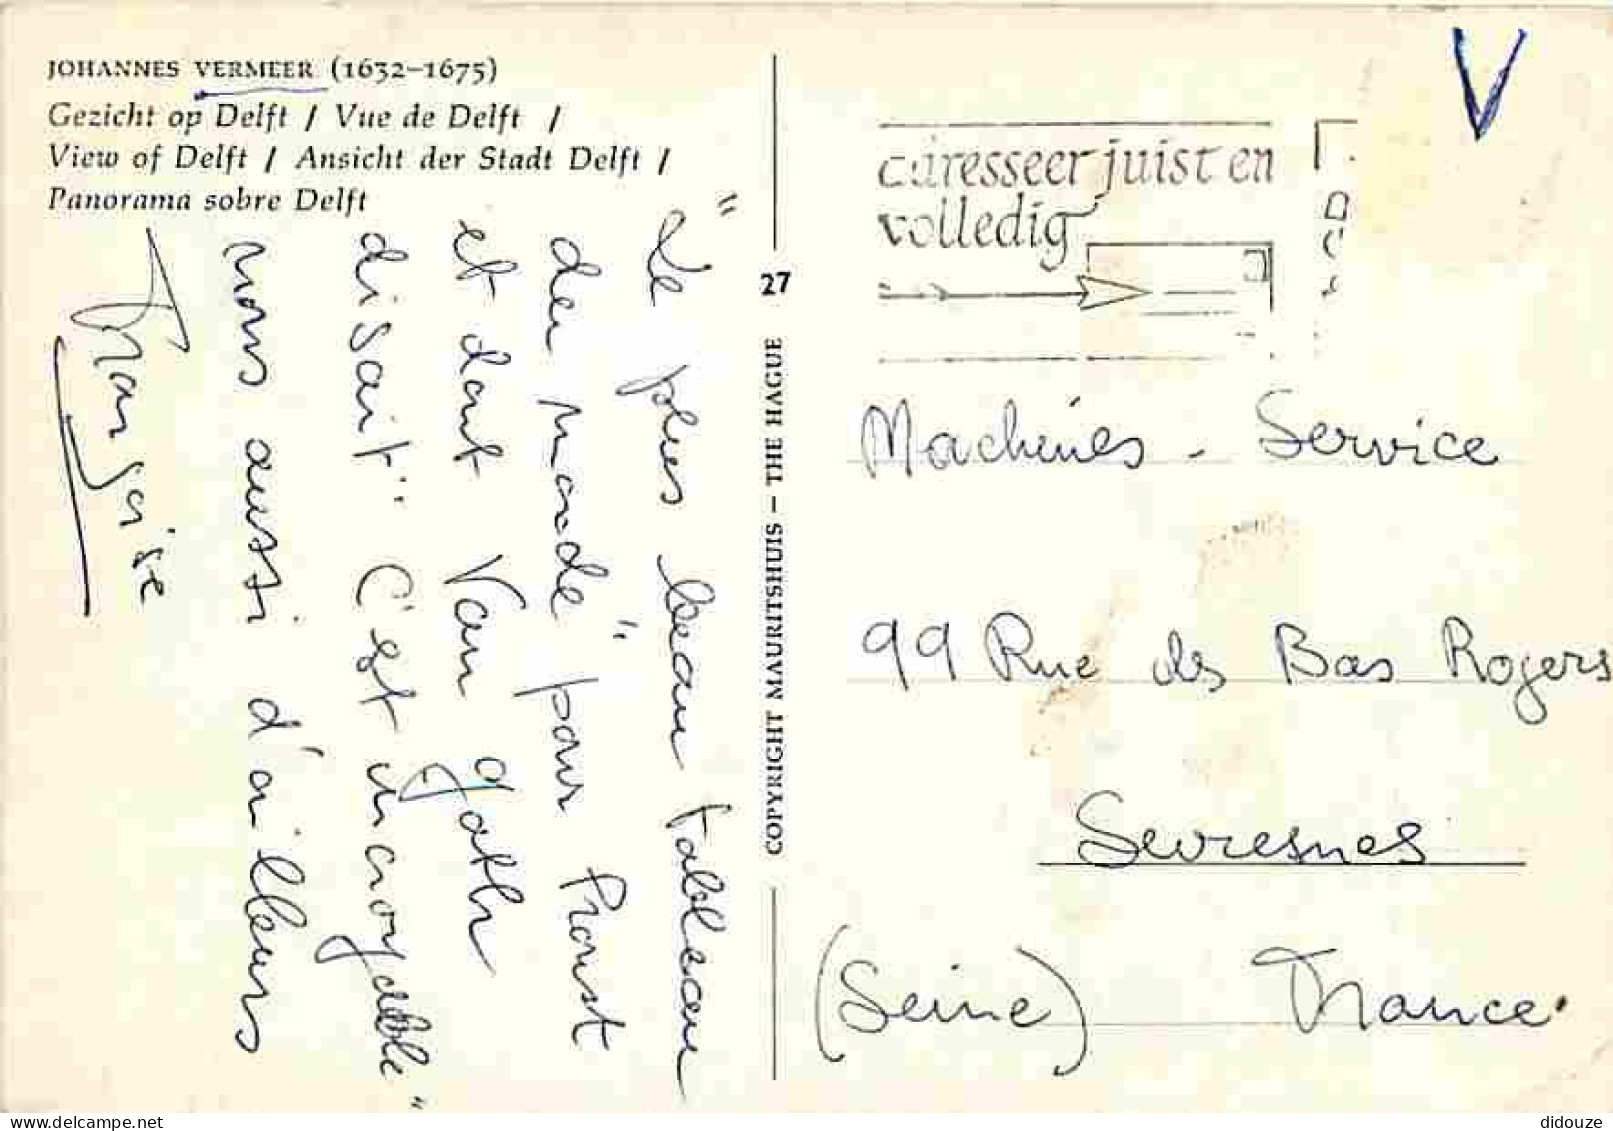 JOHANNES VERMEER (1632–1675)
Gezicht op Delft / Vue de Delft /
View of Delft / Ansicht der Stadt Delft /
Panorama sobre Delft
"Le plus beau tableau
du monde" pour Proust
et dont Van Gogh
disait "C'est incroyable"
nous aussi d'ailleurs
Françoise
27
COPYRIGHT MAURITSHUIS – THE HAGUE
V
adresseer juist en
volledig
Machines - Service
99 Rue des Bas Rogers
Suresnes
(Seine) France.
didouze